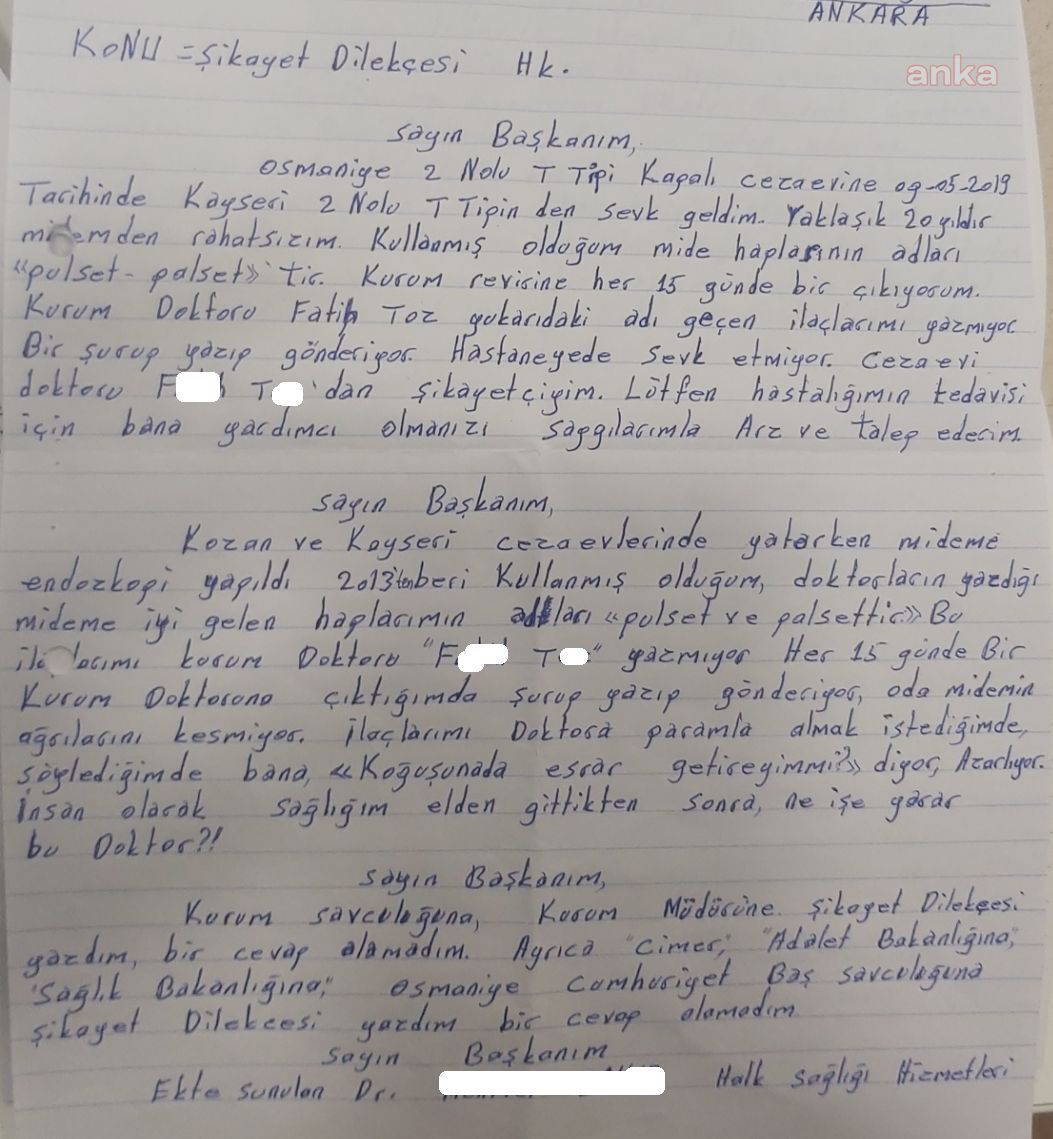 ANKARA
KONU = Şikayet Dilekçesi Hk.
anka
Sayın Başkanım,
Osmaniye 2 Nolu T Tipi Kapalı cezaevine 09-05-2019
Tarihinde Kayseri 2 Nolu T Tipin den sevk geldim. Yaklaşık 20 yıldır
midemden rahatsızım. Kullanmış olduğum mide haplarının adları
«pulset - palset» tir. Kurum revirine her 15 günde bir çıkıyorum.
Kurum Doktoru Fatih Toz yukarıdaki adı geçen ilaçlarımı yazmıyor
Bir şurup yazıp gönderiyor. Hastaneyede sevk etmiyor. Cezaevi
doktoru F T 'dan şikayetçiyim. Lütfen hastalığımın tedavisi
için bana yardımcı olmanızı saygılarımla Arz ve talep ederim
Sayın Başkanım,
Kozan ve Kayseri cezaevlerinde yatarken mideme
endozkopi yapıldı 2013'tenberi Kullanmış olduğum, doktorların yazdığı
mideme iyi gelen haplarımın adları «pulset ve palsettir» Bu
ilaçlarımı kurum Doktoru "F T " yazmıyor Her 15 günde Bir
Kurum Doktoruna çıktığımda şurup yazıp gönderiyor, oda midemin
ağrılarını kesmiyor. İlaçlarımı Doktora paramla almak istediğimde,
söylediğimde bana, «Koğuşunada esrar getireyimmi?» diyor, Azarlıyor.
İnsan olarak sağlığım elden gittikten sonra, ne işe yarar
bu Doktor?!
Sayın Başkanım,
Kurum savcılığına, Kurum Müdürüne Şikayet Dilekçesi
yazdım, bir cevap alamadım. Ayrıca "Cimer," "Adalet Bakanlığına,"
"Sağlık Bakanlığına," Osmaniye Cumhuriyet Baş savcılığına
Şikayet Dilekcesi yazdım bir cevap alamadım
Sayın Başkanım
Ekte sunulan Dr. Halk Sağlığı Hizmetleri